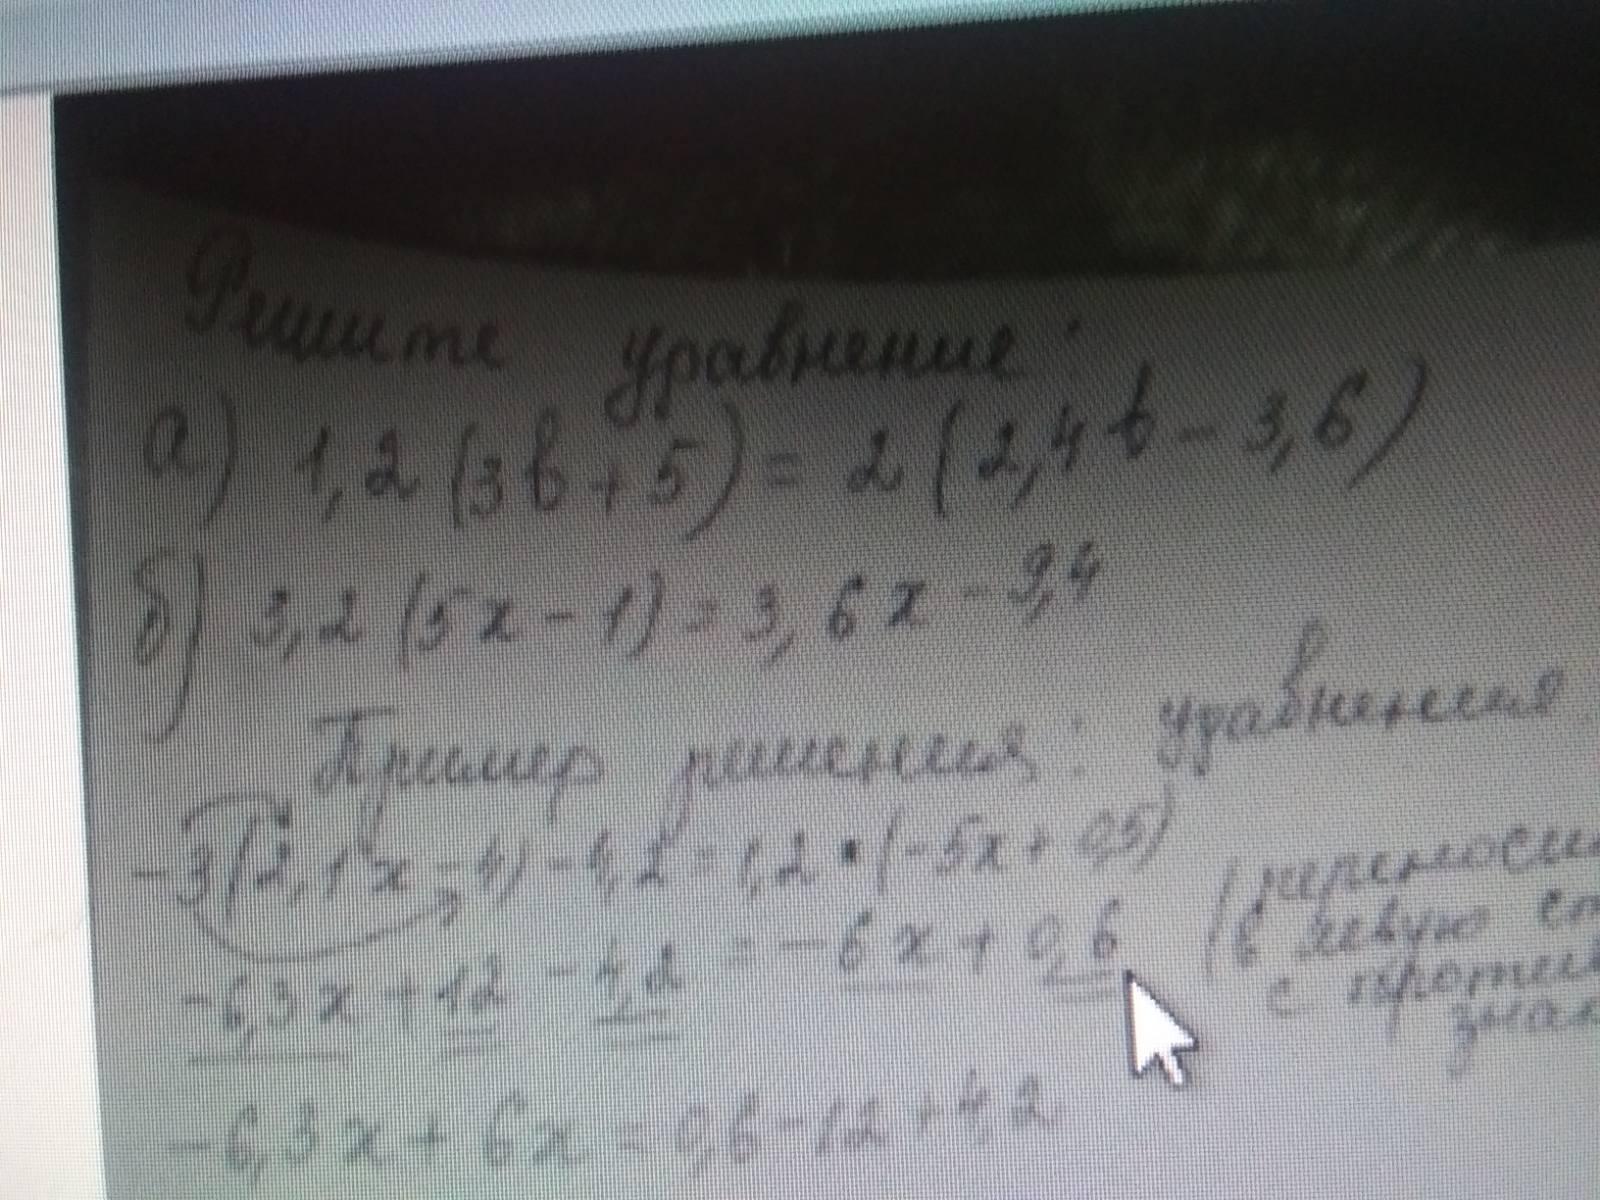 Решите уравнение:
а) 1,2(3b+5)=2(2,4b-3,6)
б) 3,2(5x-1)=3,6x-9,4
Пример решения: уравнения
-3(2,1x-4)-4,2=1,2·(-5x+0,5)
-6,3x+12-4,2=-6x+0,6
переноси
в левую ст
с против
знак
-6,3x+6x=0,6-12+4,2